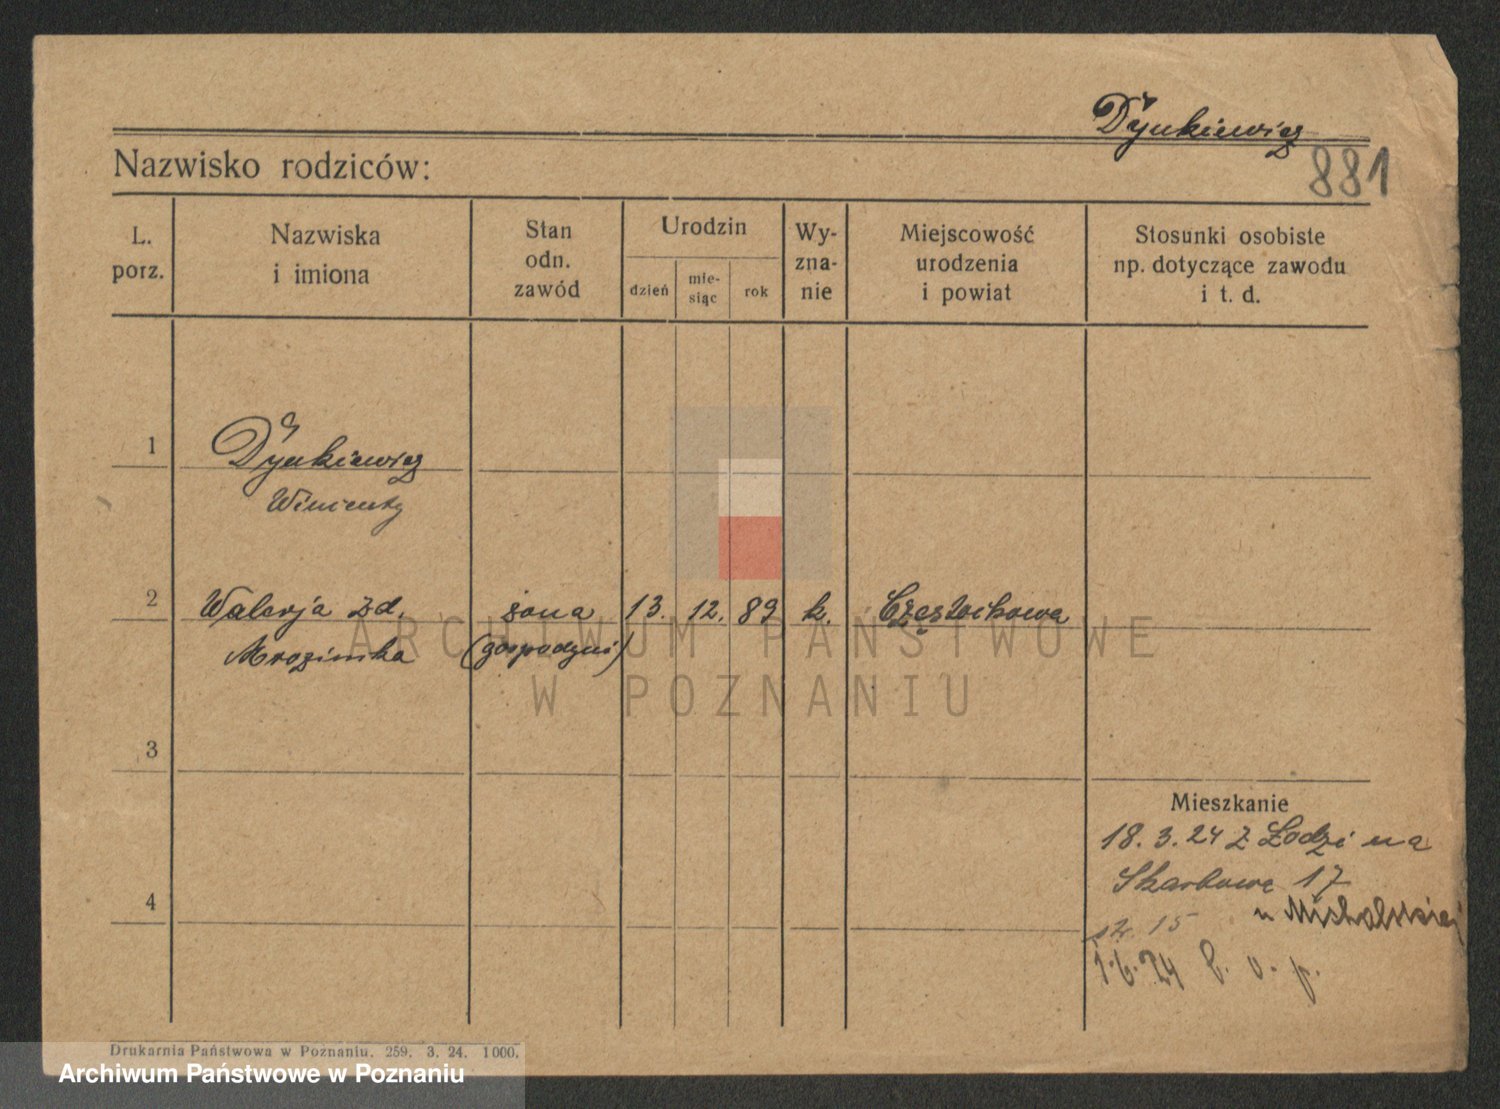 Dynkiewicz
Nazwisko rodziców:
881
L. porz.
Nazwiska i imiona
Stan odn. zawód
Urodzin
dzień
mie-siąc
rok
Wy-zna-nie
Miejscowość urodzenia i powiat
Stosunki osobiste np. dotyczące zawodu i t. d.
1
Dynkiewicz
Wincenty
2 Walerja zd. żona 13. 12. 89 k. Częstochowa
Mrozinska (gospodyni)
ARCHIWUM PAŃSTWOWE
W POZNANIU
3
Mieszkanie
18.3.24 z Łodzi na
Skarbowe 17
4
u Michalskiej
15
1.6.24
Drukarnia Państwowa w Poznaniu. 259. 3. 24. 1000.
Archiwum Państwowe w Poznaniu